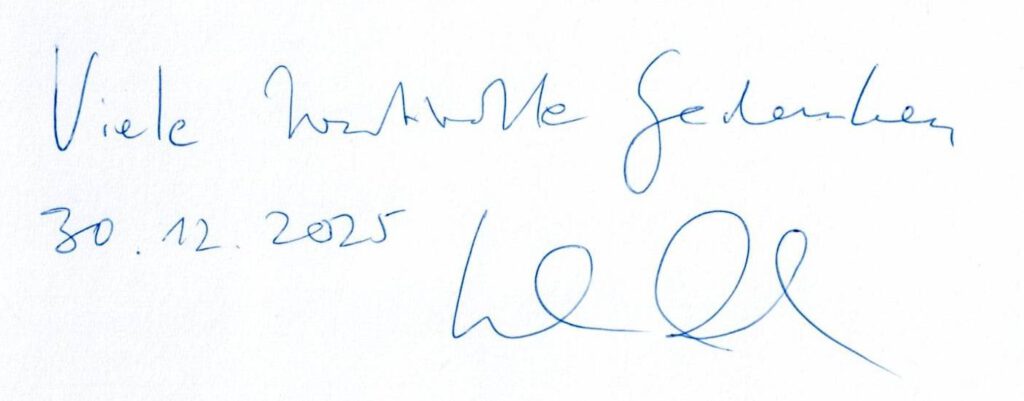 Viele wertvolle Gedanken
30.12.2025